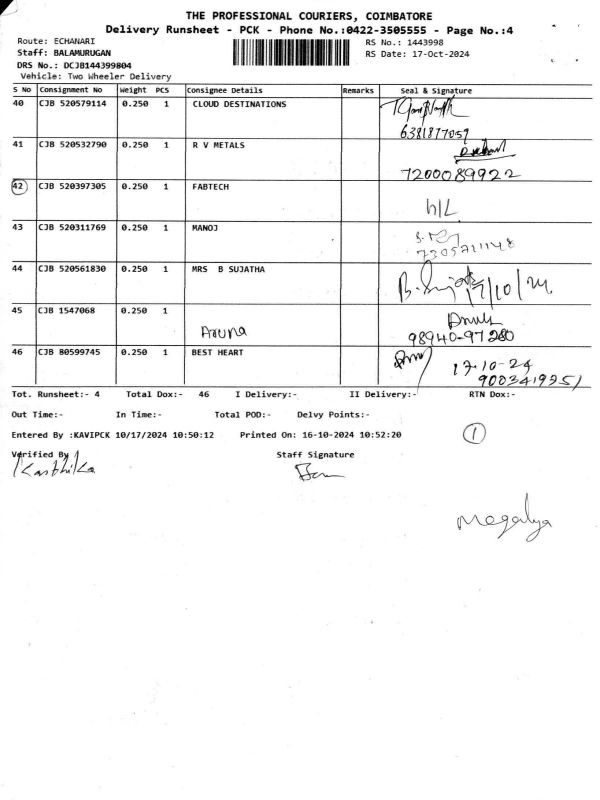 THE PROFESSIONAL COURIERS, COIMBATORE
Delivery Runsheet - PCK - Phone No.:0422-3505555 - Page No.:4
Route: ECHANARI RS No.: 1443998
Staff: BALAMURUGAN RS Date: 17-Oct-2024
DRS No.: DCJB144399804
Vehicle: Two Wheeler Delivery
S No Consignment No Weight PCS Consignee Details Remarks Seal & Signature
40 CJB 520579114 0.250 1 CLOUD DESTINATIONS
6381877059
41 CJB 520532790 0.250 1 R V METALS
7200089922
42 CJB 520397305 0.250 1 FABTECH
h/L
43 CJB 520311769 0.250 1 MANOJ
44 CJB 520561830 0.250 1 MRS B SUJATHA
B. Sujatha 17/10/24
45 CJB 1547068 0.250 1
Aruna
98940-97280
46 CJB 80599745 0.250 1 BEST HEART
17-10-24
9003419951
Tot. Runsheet:- 4 Total Dox:- 46 I Delivery:- II Delivery:- RTN Dox:-
Out Time:- In Time:- Total POD:- Delvy Points:-
Entered By :KAVIPCK 10/17/2024 10:50:12 Printed On: 16-10-2024 10:52:20 1
Verified By Staff Signature
Karthika
Megalya